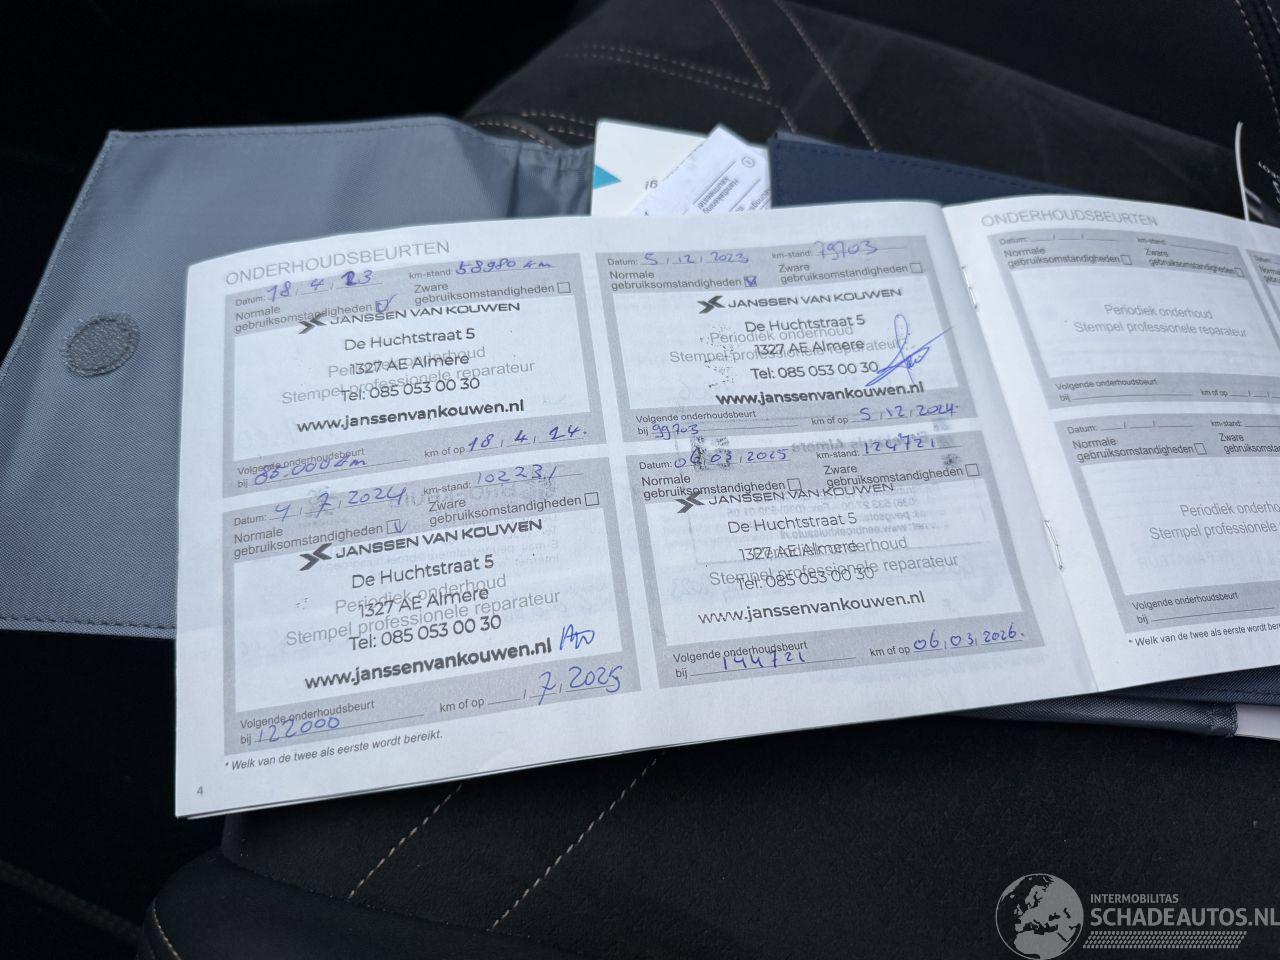 ONDERHOUDSBEURTEN
Datum: 18, 4, 23 km-stand: 58980 km
Normale gebruiksomstandigheden Zware gebruiksomstandigheden
JANSSEN VAN KOUWEN
De Huchtstraat 5
Periodiek onderhoud
1327 AE Almere
Stempel professionele reparateur
Tel: 085 053 00 30
www.janssenvankouwen.nl
Volgende onderhoudsbeurt
bij 80.000 km km of op 18, 4, 24.
Datum: 4, 7, 2024 km-stand: 102231
Normale gebruiksomstandigheden Zware gebruiksomstandigheden
JANSSEN VAN KOUWEN
De Huchtstraat 5
Periodiek onderhoud
1327 AE Almere
Stempel professionele reparateur
Tel: 085 053 00 30
www.janssenvankouwen.nl
Volgende onderhoudsbeurt
bij 122000 km of op , 7, 2025
* Welk van de twee als eerste wordt bereikt.
4
Datum: 5, 12, 2023 km-stand: 79703
Normale gebruiksomstandigheden Zware gebruiksomstandigheden
JANSSEN VAN KOUWEN
De Huchtstraat 5
Periodiek onderhoud
1327 AE Almere
Stempel professionele reparateur
Tel: 085 053 00 30
www.janssenvankouwen.nl
Volgende onderhoudsbeurt
bij 99703 km of op 5, 12, 2024.
Datum: 06, 03, 2025 km-stand: 124721
Normale gebruiksomstandigheden Zware gebruiksomstandigheden
JANSSEN VAN KOUWEN
De Huchtstraat 5
1327 AE Almere
Periodiek onderhoud
Stempel professionele reparateur
Tel: 085 053 00 30
www.janssenvankouwen.nl
Volgende onderhoudsbeurt
bij 144721 km of op 06, 03, 2026.
ONDERHOUDSBEURTEN
Datum: / / km-stand:
Normale gebruiksomstandigheden Zware gebruiksomstandigheden
Periodiek onderhoud
Stempel professionele reparateur
Volgende onderhoudsbeurt
bij km of op / /
Datum: / / km-stand:
Normale gebruiksomstandigheden Zware
Periodiek
Stempel professionele
Volgende onderhoudsbeurt
bij
* Welk van de twee als eerste wordt
INTERMOBILITAS
SCHADEAUTOS.NL